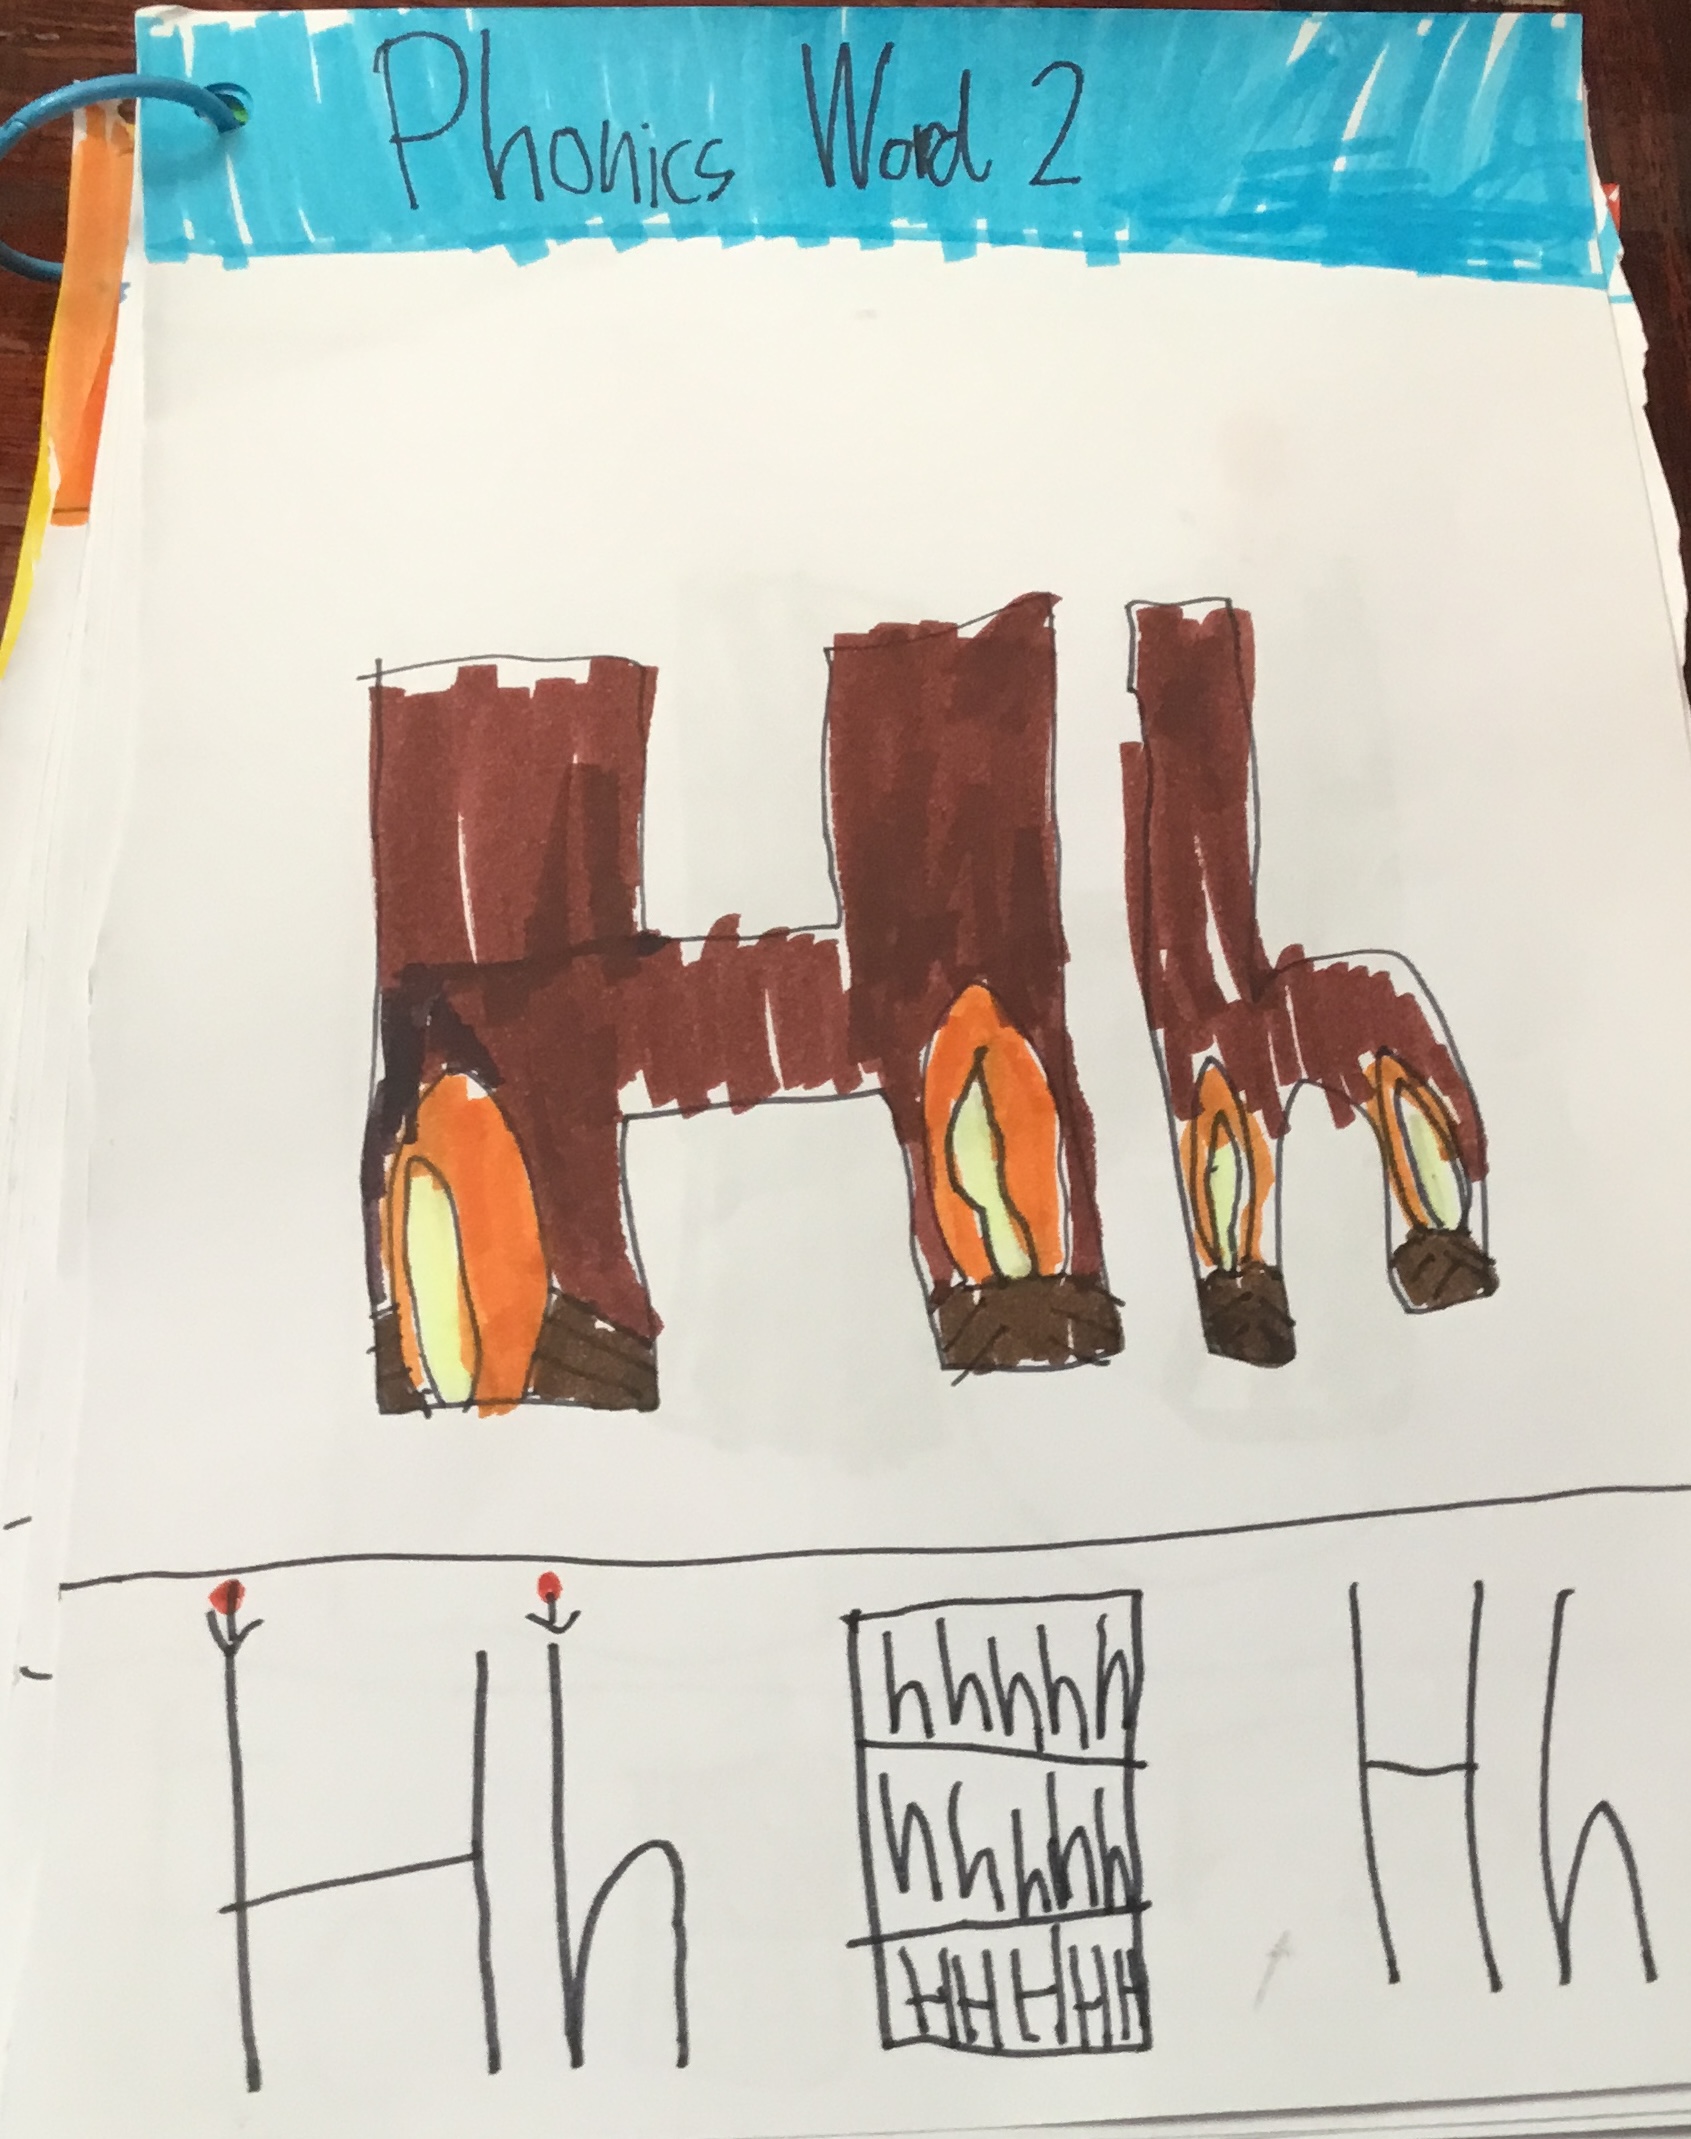 Phonics Word 2
Hh
Hh
hhhhh
hhhhh
HHHHH
Hh